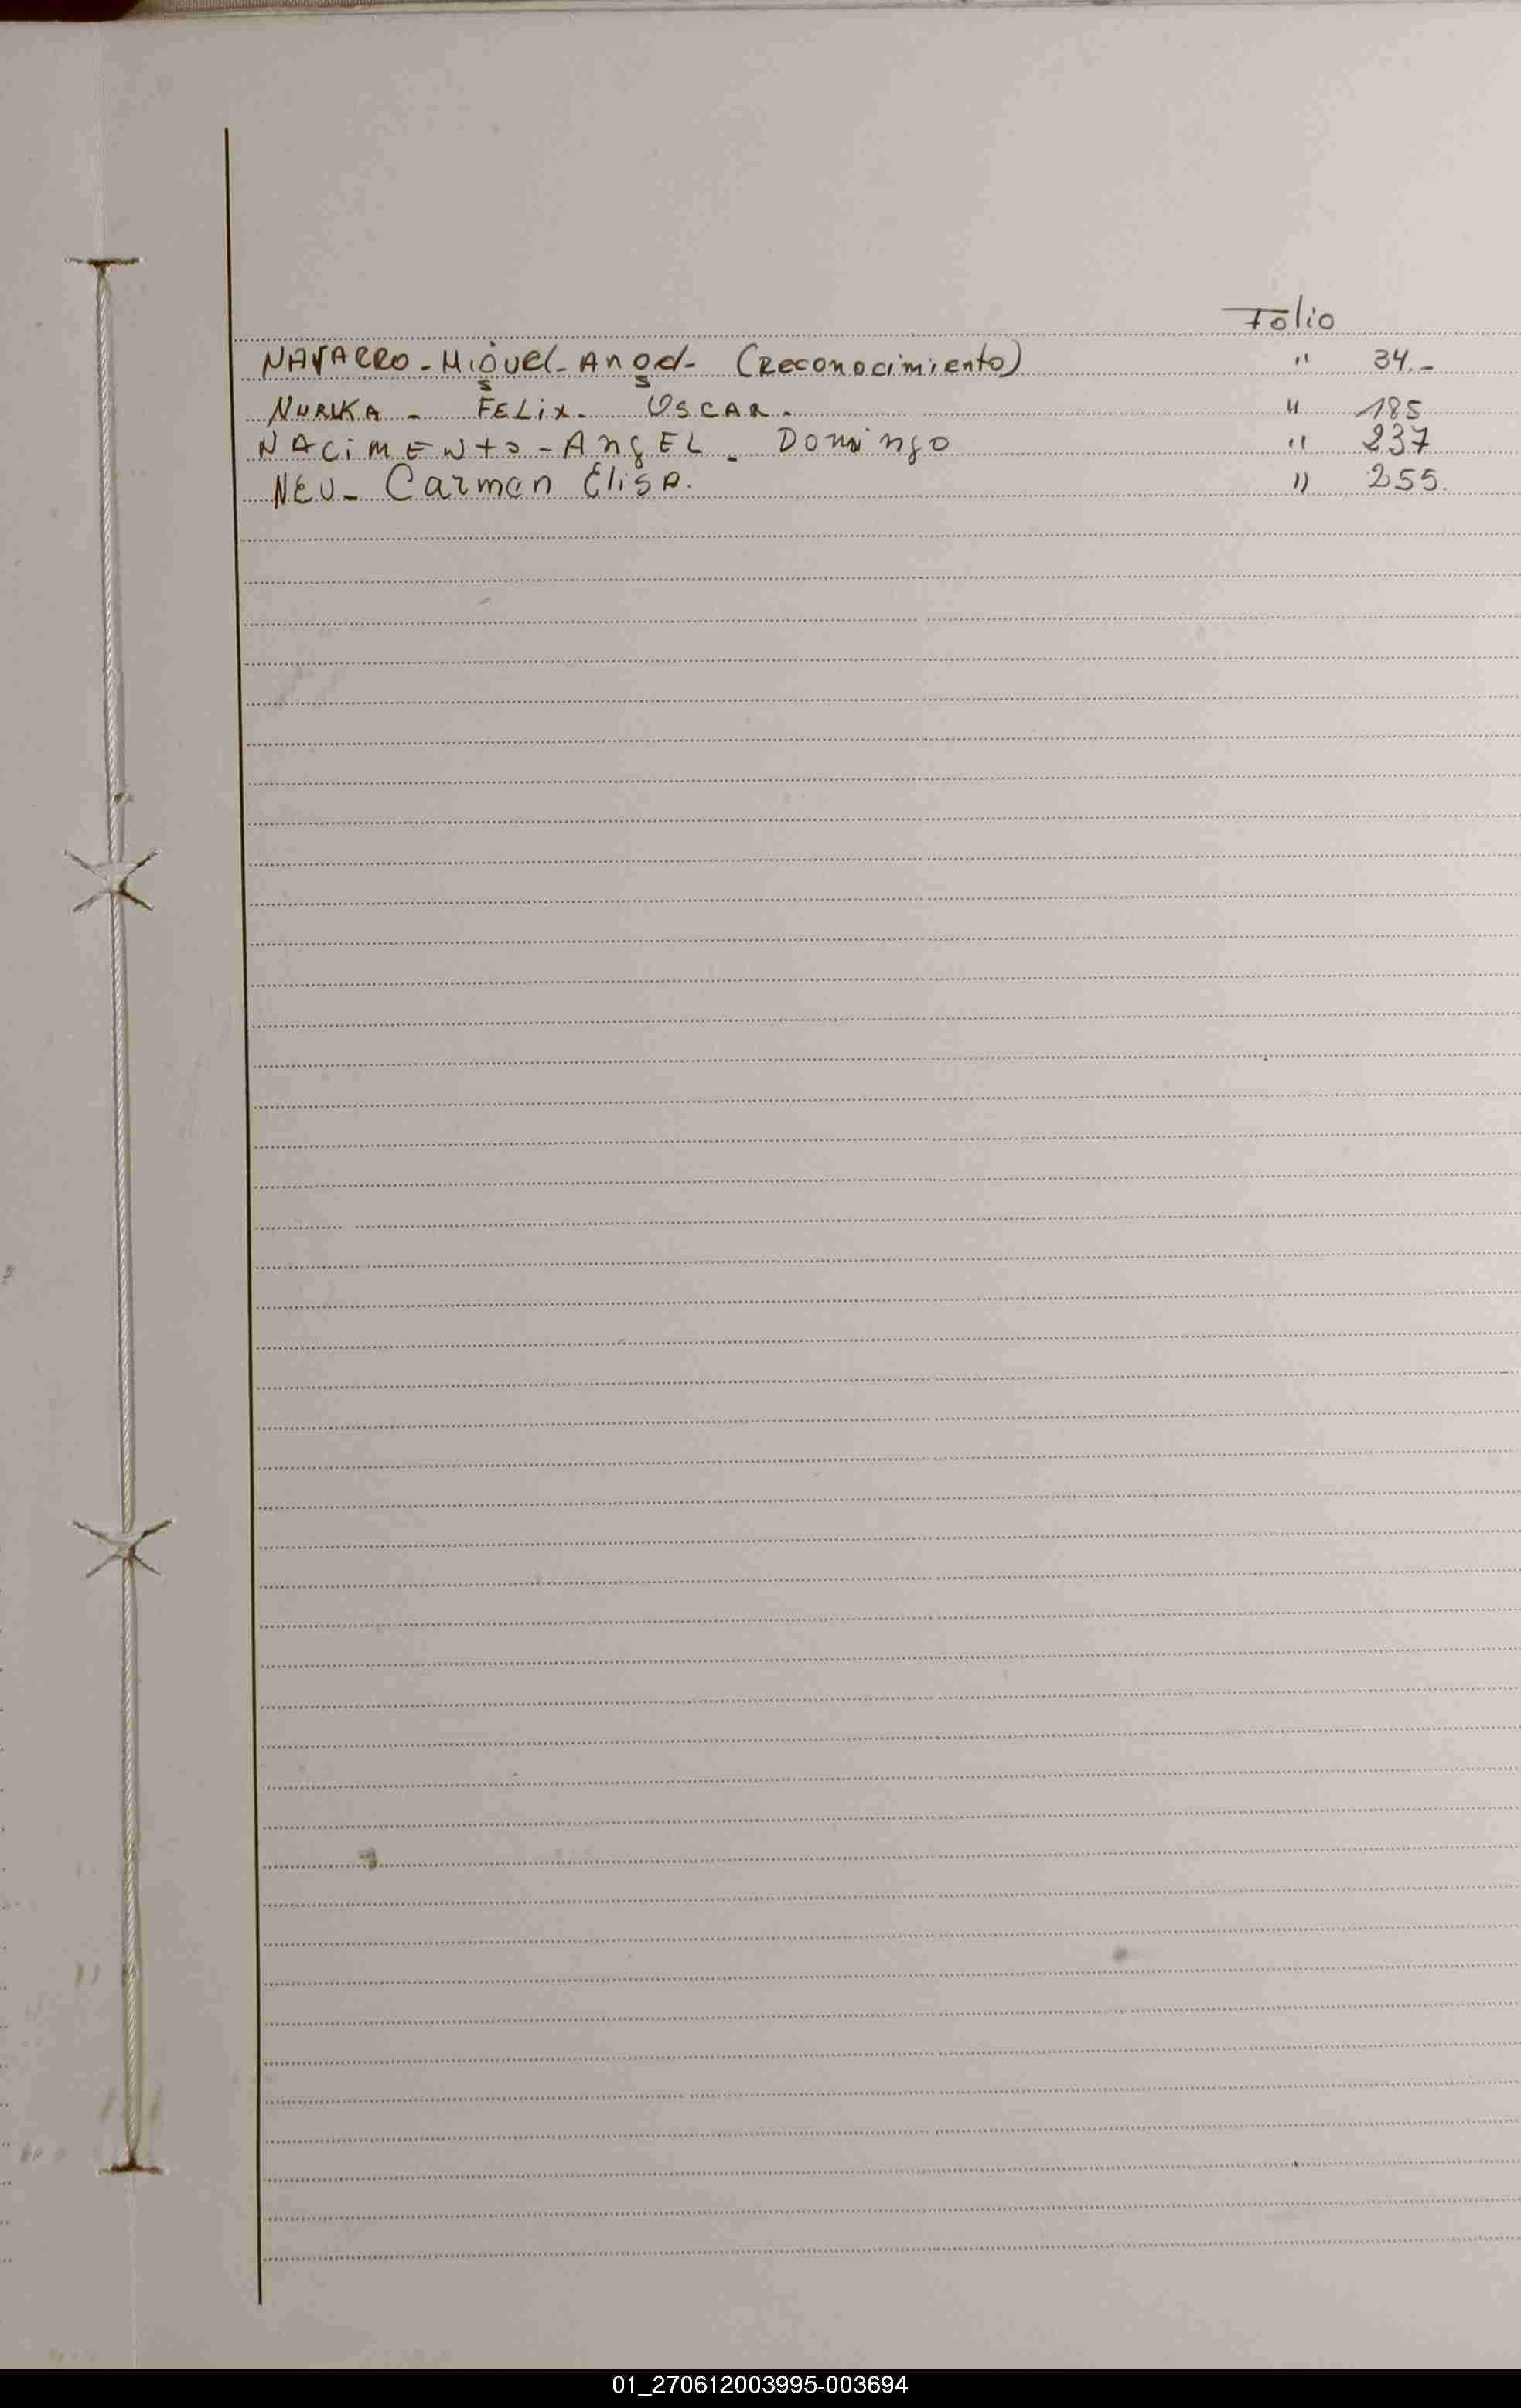 Folio
NAVARRO - Miguel - Angel - (Reconocimiento) " 34.-
NURKA - FELix - OSCAR - " 185
NACiMENto - AngEL - Domingo " 237
NEU - Carmen Elisa. " 255.
01_270612003995-003694